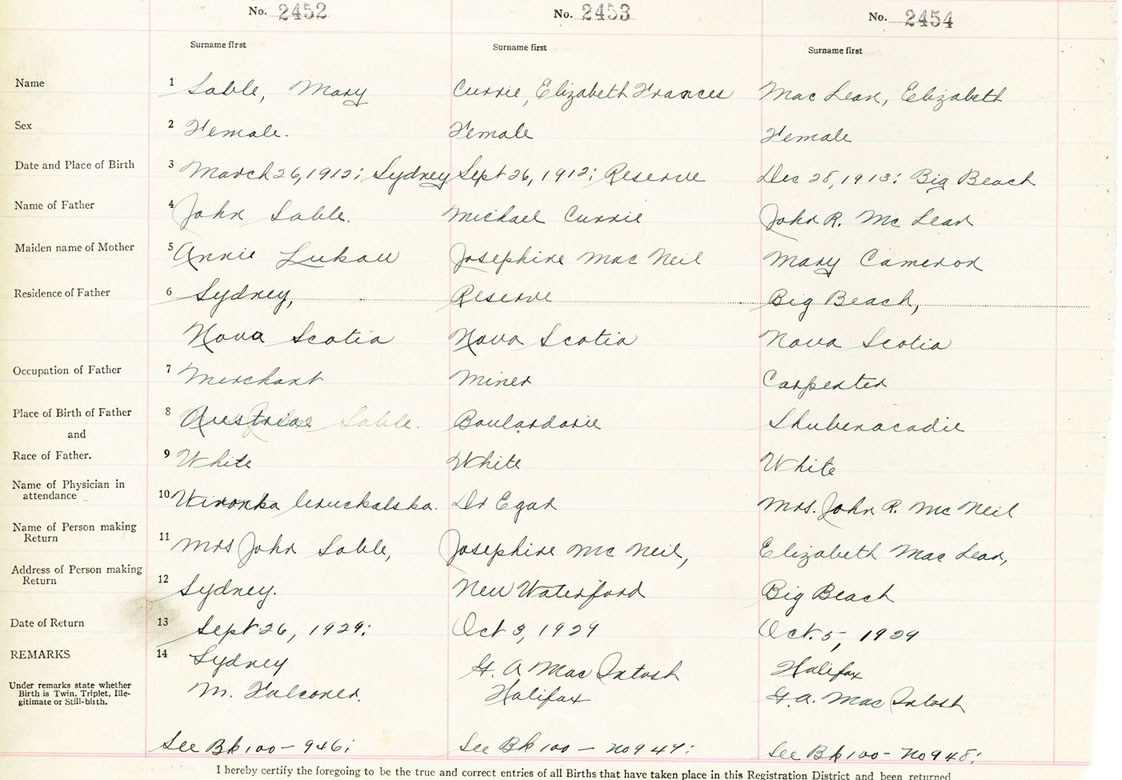 No. 2452 No. 2453 No. 2454
Surname first Surname first Surname first
Name 1 Sable, Mary Currie, Elizabeth Frances Mac Lean, Elizabeth
Sex 2 Female. Female Female
Date and Place of Birth 3 March 26, 1912; Sydney Sept 26, 1912; Reserve Dec 28, 1913; Big Beach
Name of Father 4 John Sable. Michael Currie John R. Mc Lean
Maiden name of Mother 5 Annie Lukow Josephine Mac Neil Mary Cameron
Residence of Father 6 Sydney, Reserve Big Beach,
Nova Scotia Nova Scotia Nova Scotia
Occupation of Father 7 Merchant Miner Carpenter
Place of Birth of Father 8 Austria Sable. Boulardarie Shubenacadie
and
Race of Father. 9 White White White
Name of Physician in
attendance 10 Dr Egan Mrs. John R. Mc Neil
Name of Person making
Return 11 Mrs John Sable, Josephine Mc Neil, Elizabeth Mac Lean,
Address of Person making
Return 12 Sydney. New Waterford Big Beach
Date of Return 13 Sept 26, 1929; Oct 3, 1929 Oct. 5, 1929
REMARKS 14 Sydney G. A. Mac Intosh Halifax
Under remarks state whether
Birth is Twin, Triplet, Ille-
gitimate or Still-birth.
M. Falconer. Halifax G. A. Mac Intosh
See Bk 100 - 946; See Bk 100 - No 947; See Bk 100 - No 948;
I hereby certify the foregoing to be the true and correct entries of all Births that have taken place in this Registration District and been returned